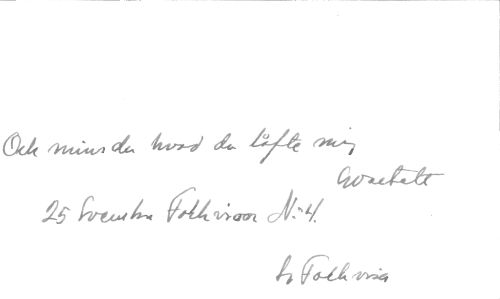 Och minns du hvad du låfte mig
25 Svenska Folkvisor No 4.
Sv Folkvisa